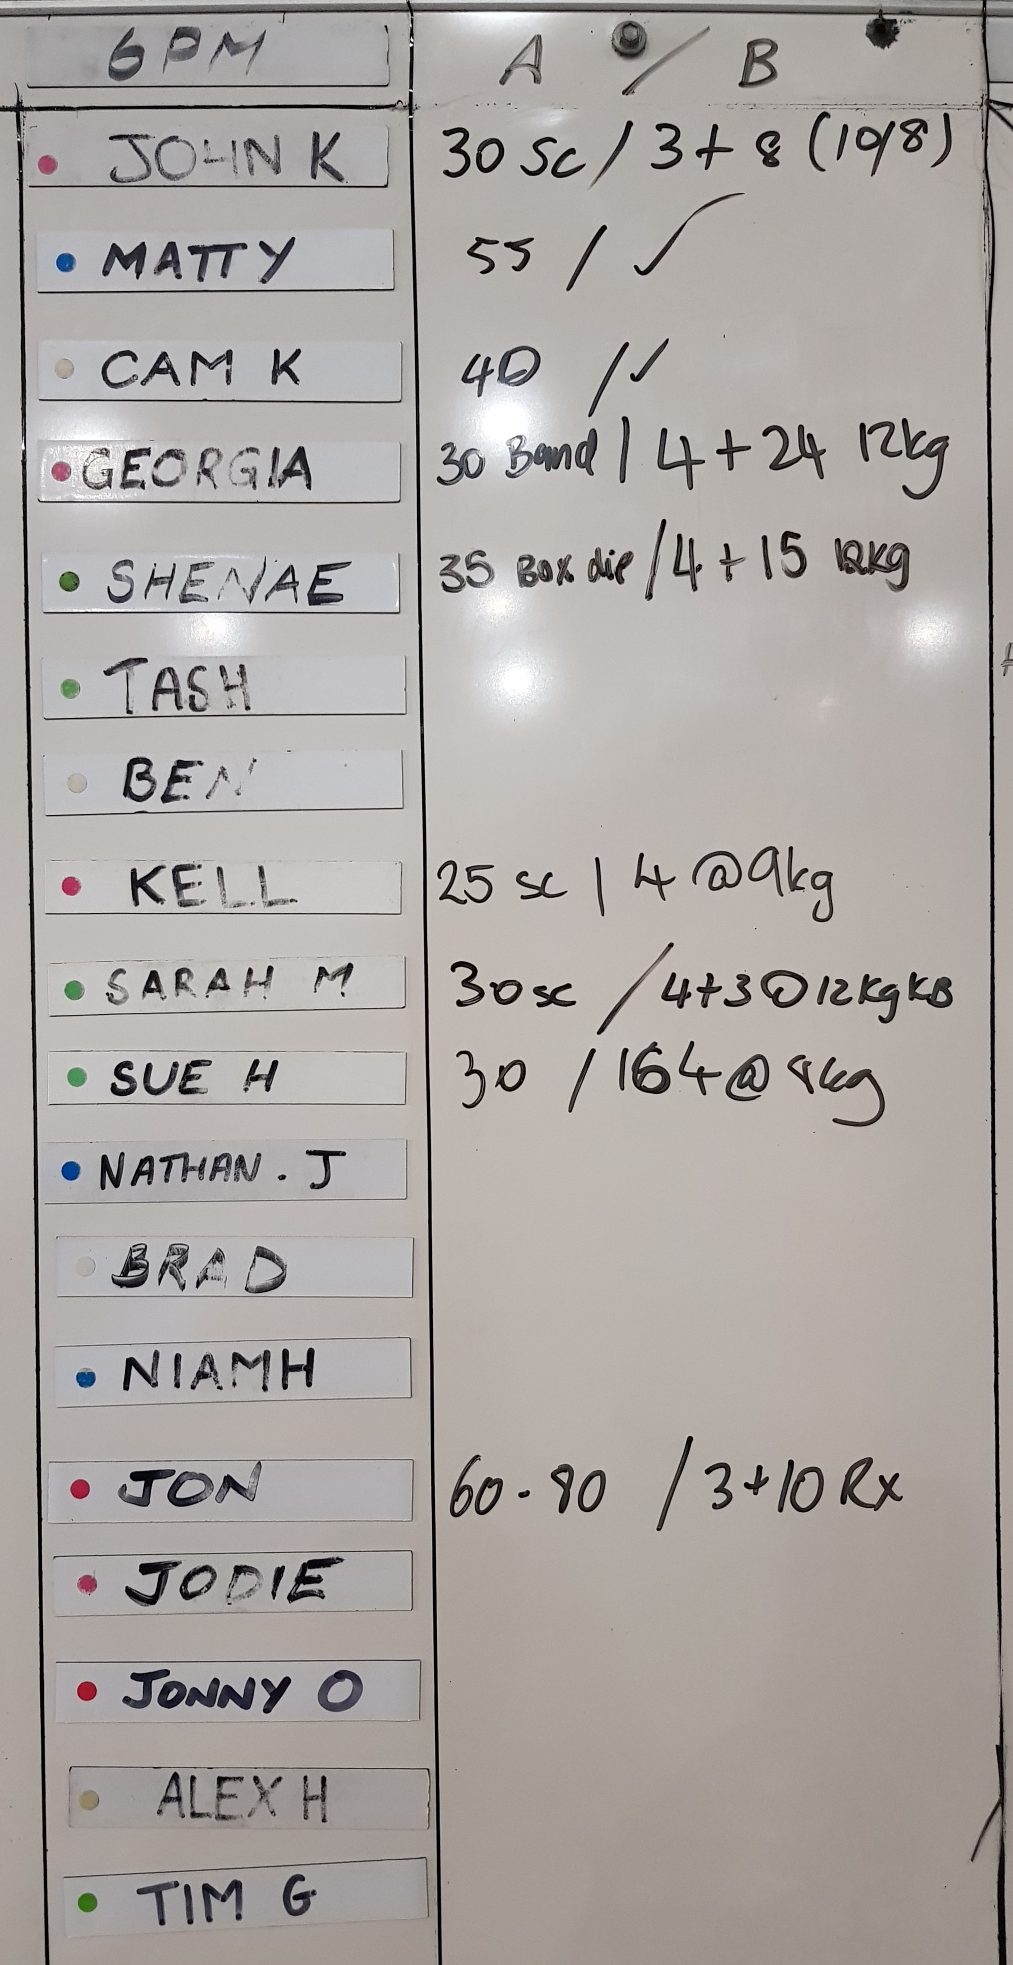 6PM A / B
JOHN K 30 SC / 3 + 8 (10/8)
MATTY 55 / ✓
CAM K 40 / ✓
GEORGIA 30 Band / 4 + 24 12kg
SHENAE 35 Box dip / 4 + 15 12kg
TASH
BEN
KELL 25 sc / 4 @ 9kg
SARAH M 30 sc / 4+3 @ 12kg KB
SUE H 30 / 164 @ 8kg
NATHAN. J
BRAD
NIAMH
JON 60-80 / 3+10 Rx
JODIE
JONNY O
ALEX H
TIM G